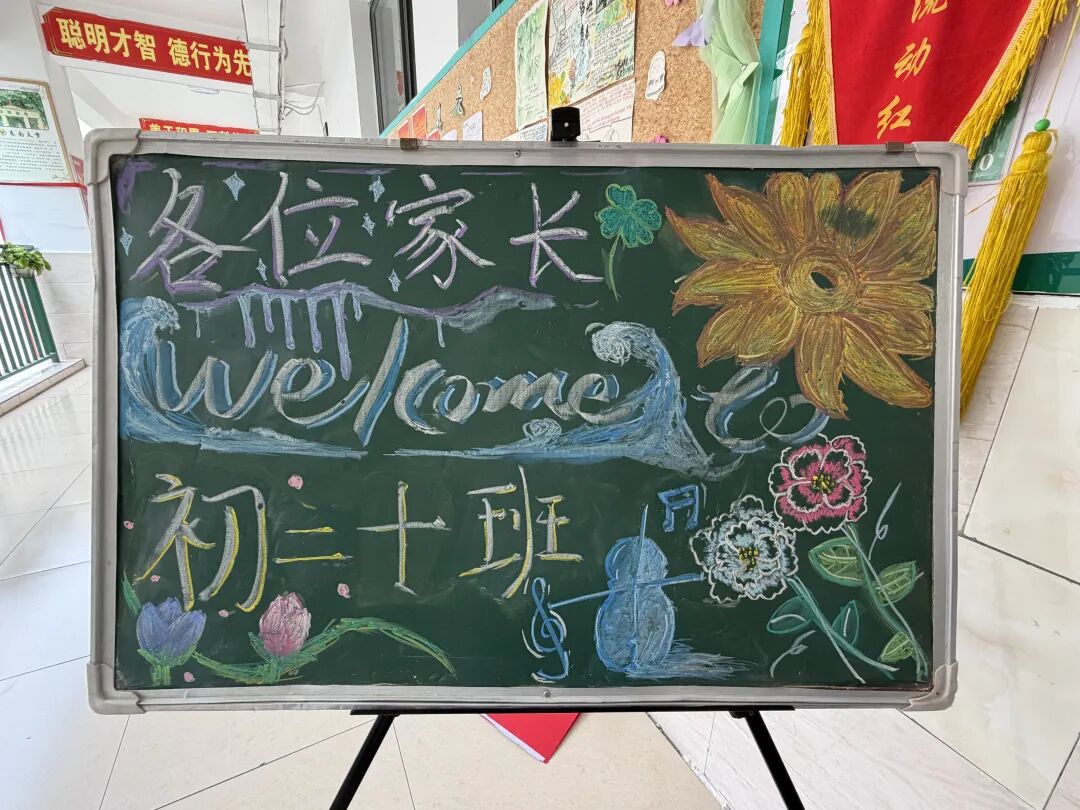 聪明才智 德行为先
流动红
各位家长
welcome to
初二十班